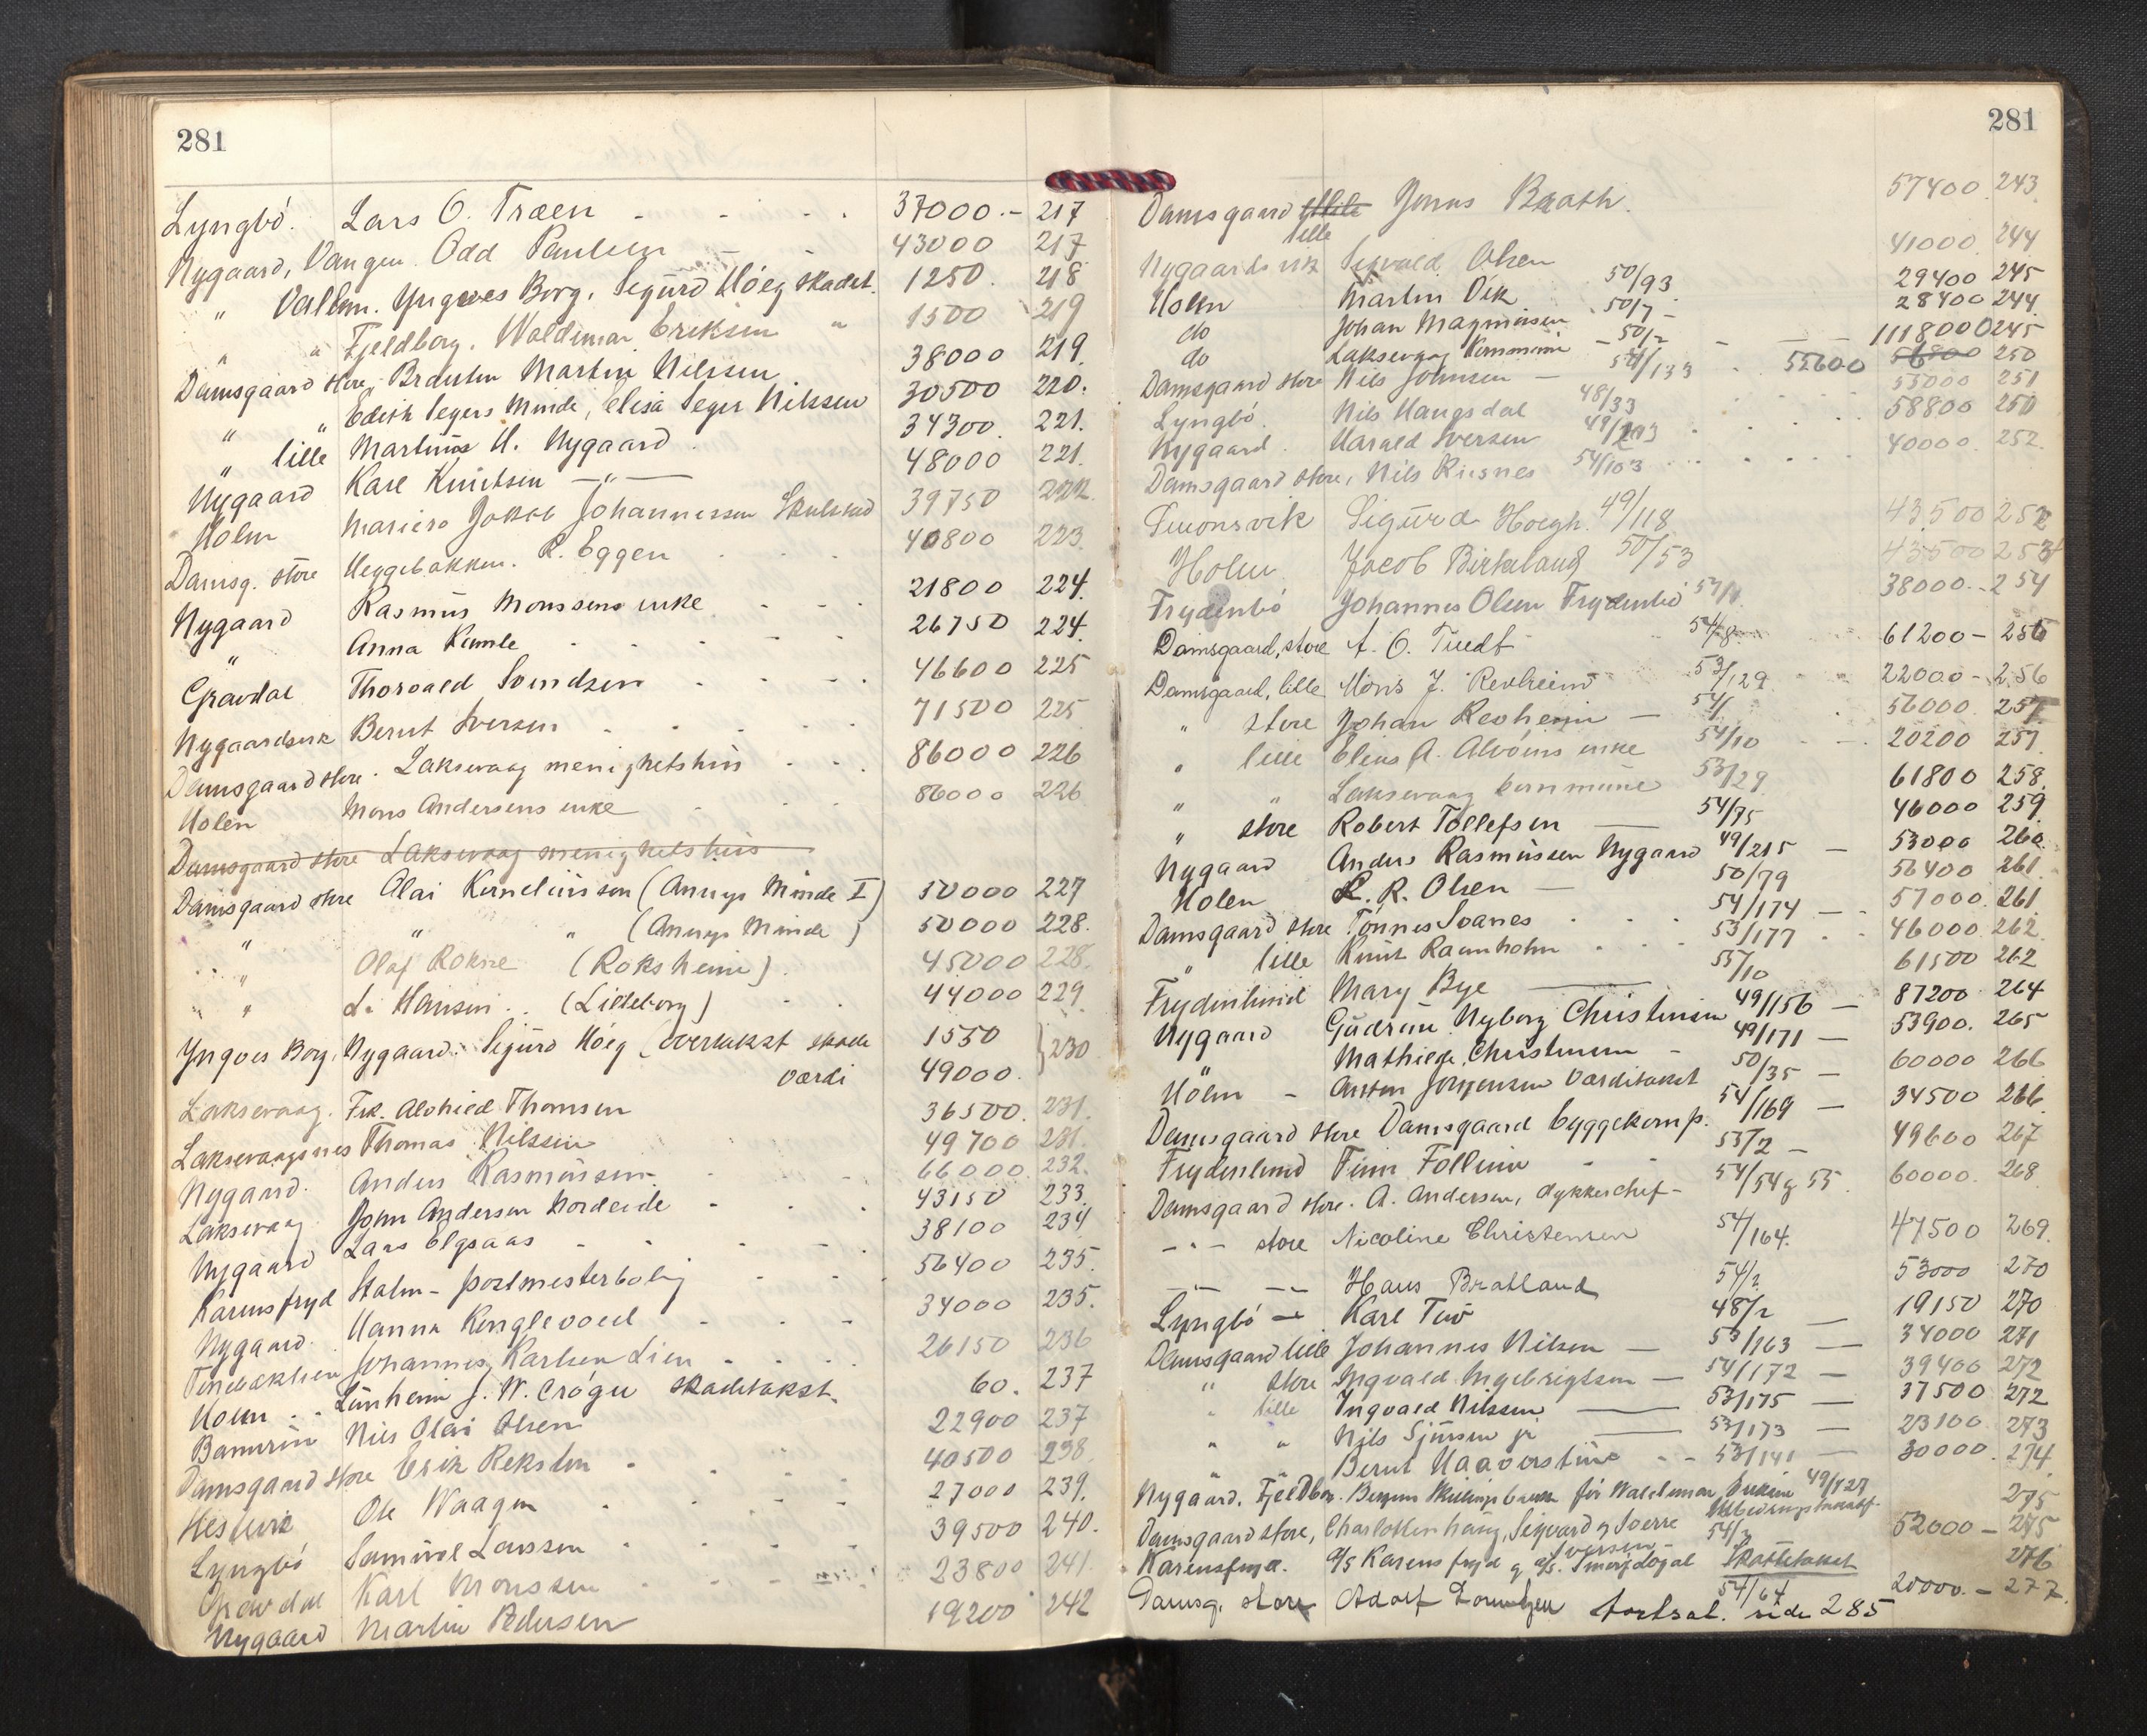 281
Lyngbö. Lars O. Træen - - - - 37000.- 217
Nygaard, Vangen. Odd Paulsen - - 43000 217
" Vallen. Yngves Borg. Sigurd Höeg skadet. 1250. 218
" " Fjeldborg. Waldemar Eriksen " 1500 219
Damsgaard store, Martin Nilssen 38000 219
" " Edith Segers Minde, Elisa Seger Nilssen 30500 220.
" lille Martinus H. Nygaard. 34300 221.
Nygaard Karl Knutsen —"— 48000 221.
Holm Jakob Johannessen 39750 222.
Damsg. store Heggebakken. R. Eggen - - - 40800 223.
Nygaard Rasmus Monssens enke - - - 21800 224.
" Anna - - - - - 26750 224.
Gravdal Thorvald Svendsen - - - - 46600 225
Nygaardsvik Bernt Iversen - - - - 71500 225
Damsgaard store. Laksevaag menighetshus - - - 86000 226
Holen Mons Andersens enke - - - 86000 226
Damsgaard store Laksevaag menighetshus
Damsgaard store Olai Korneliussen (Annys Minde I) 50000 227
" " " (Annys Minde) 50000 228.
" Olaf Rokne (Roksheim) 45000 228.
" L. Hansen. (Lidleborg) - - 44000 229
Yngves Borg, Nygaard. Sigurd Höeg (overtakst skade 1550
værdi 49000. } 230
Laksevaag. Frk. Alvhild Thomsen 36500. 231.
Laksevaagsnes Thomas Nilssen 49700 231.
Nygaard. Anders Rasmussen. - - 66000. 232.
Laksevaag John Andersen Nordeide - - - 43150 233.
Nygaard Lars Elgsaas - - - - 38100 234
Karensfryd Halm- postmesterbolig - - 56400 235.
Nygaard. Hanna Konglevoll - - - 34000 235.
Johannes Karlsen Lien - - - - 26150 236
Holm. J. W. skadetakst. 60. 237
Nils Olai Olsen 22900 237
Damsgaard store Erik Reksten - - - - 40500 238.
Ole Waagen - - - - 27000 239.
Lyngbö Samuel Larssen - - - - 39500 240.
Gravdal Karl Monssen - - - 23800 241.
Nygaard Martin Pedersen 19200 242
281
Damsgaard lille Jonas Braath. 57400 243
Nygaardsvik Sigvald Olsen 41000 244
Holm Martin Vik 50/93 29400 245
do Johan Magnussen 50/7 - 28400 244
do Laksevaag Kommune - 50/2 - 111800 245
Damsgaard store Nils Johnsen — 54/133 - 55600 56800 250
Lyngbö Nils Haugsdal 48/33 55000 251
Nygaard. Harald Iversen 58800 250
Damsgaard store, Nils Risnes 54/103 40000. 252.
Simonsvik Sigurd Höegh. 49/118 43500 252
Holm Jacob Birkeland 50/53 43500 253
Frydenbö Johannes Olsen Frydenbö 38000.- 254
Damsgaard, store A. O. Tuedt 54/8 61200 - 255
Damsgaard, lille Mons J. Revheim 53/129 22000 - 256
" store Johan Revheim — 54/ 56000. 257
" lille Elens A. Alvöens enke 54/10 20200 257
" " Laksevaag kommune 53/29 61800 258.
" store Robert Tollefsen — 54/75 46000 259.
Nygaard Anders Rasmussen Nygaard 49/215 — 53000 260.
Holen L. R. Olsen — 50/79 56400 261.
Damsgaard store Tönnes Soanes 54/174 — 57000. 261
" lille Knut Raunholm 53/177 46000. 262
Frydenlund Mary Bye — 55/10 61500 262
Nygaard Gudrun Nyborg Christensen 49/156 — 87200 264
Mathilde Christensen - 49/171 — 53900. 265
Holm - Anton Jörgensen værditakst 50/35 — 60000 266
Damsgaard store Damsgaard byggekomp. 54/169 — 34500 266
Frydenlund Finn Follum - - 53/2 — 49600 267
Damsgaard store. A. Andersen, dykkerchef - 54/54 g 55. 60000. 268
- " - store Nicoline Christensen 54/164. 47500 269.
— — Hans Bratland 54/2 53000 270
Lyngbö — Karl 48/2 — 19150 270
Damsgaard lille Johannes Nilsen — 53/163 — 34000 271
" store Ingvald Ingebrigtsen — 54/172 — 39400 272
" lille Ingvald Nilssen — 53/175 — 37500 272
" " Nils Sjursen jr — 53/173 — 23100. 273
" " Bernt Haaverstuno - - 53/141 — 30000. 274.
Nygaard. Fjeldborg. Bergens Skillingsbank for Waldemar Eriksen 49/127 275
Damsgaard store, Charlottenhaug, Sigvard g Sverre Iversen - 54/3 52000 - 275
Karensfryd. A/S Karensfryd g Skadetakst 276
Damsg. store Adolf 54/64 20000. - 277.
fortsat. side 285